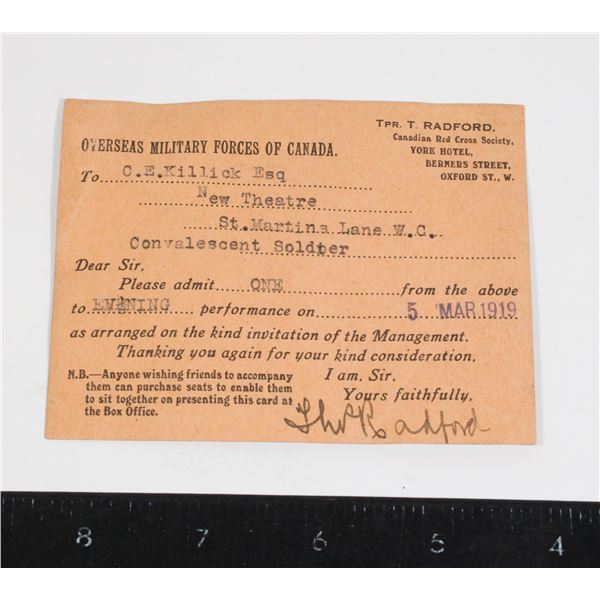 TPR. T. RADFORD.
Canadian Red Cross Society,
YORK HOTEL,
BERNERS STREET,
OXFORD ST., W.
OVERSEAS MILITARY FORCES OF CANADA.
To C.E.Killick Esq
New Theatre
St.Martins Lane W.C.
Convalescent Soldier
Dear Sir,
Please admit ONE from the above
to EVENING performance on 5 MAR 1919
as arranged on the kind invitation of the Management.
Thanking you again for your kind consideration,
I am, Sir,
Yours faithfully,
N.B.—Anyone wishing friends to accompany
them can purchase seats to enable them
to sit together on presenting this card at
the Box Office.
Thos Radford
8 7 6 5 4